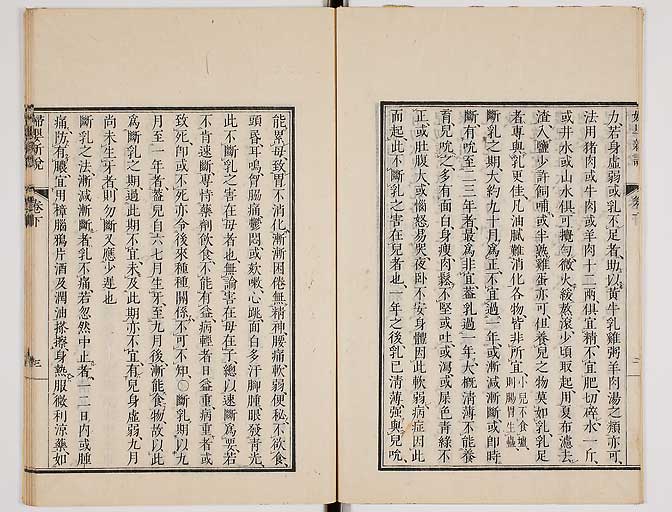 力若身虛弱或乳不足者助以黃牛乳雞粥羊肉湯之類亦可
法用猪肉或牛肉或羊肉十二兩俱宜精不宜肥切碎水一斤
或井水或山水俱可攪勻微火緩蒸滾少頃取起用夏布濾去
渣入鹽少許飼哺或半熟雞蛋亦可但養兒之物莫如乳乳足
者專與乳更佳凡油膩難消化各物皆非所宜小兒不食壚則腸胃生蟲
斷乳之期大約九十月爲正不宜過一年或漸減漸斷或即時
斷有吮至二三年者最爲非宜蓋乳過一年大槪淸薄不能養
育兒吮之多有面白身瘦肉鬆不堅或吐或瀉或屎色靑綠不
正或肚腹大或惱怒易哭夜卧不安身體因此軟弱病症因此
而起此不斷乳之害在兒者也一年之後乳已淸薄强與兒吮
婦嬰新說 卷下 二
能累母致胃不消化漸漸困倦無精神腰痛軟弱便秘不欲食
頭昏耳鳴胷腸痛鬱悶或欬嗽心跳面白多汗脚腫眼發靑光
此不斷乳之害在母者也無論害在母在子總以速斷爲要若
不肯速斷專恃藥劑飮食不能有益病輕者日益重病重者或
致死卽或不死亦令後來種種關係不可不知○斷乳期以九
月至一年者蓋兒自六七月生牙至九月後漸能食物故以此
爲斷乳之期過此期不宜未及此期亦不宜有兒身虛弱九月
尙未生牙者則勿斷又應少遲也
斷乳之法漸減漸斷者乳不痛若忽然中止者一二日內或腫
痛防有膿宜用樟腦鴉片酒及潤油搽擦身熱服微利涼藥如
婦嬰新說 卷下 三